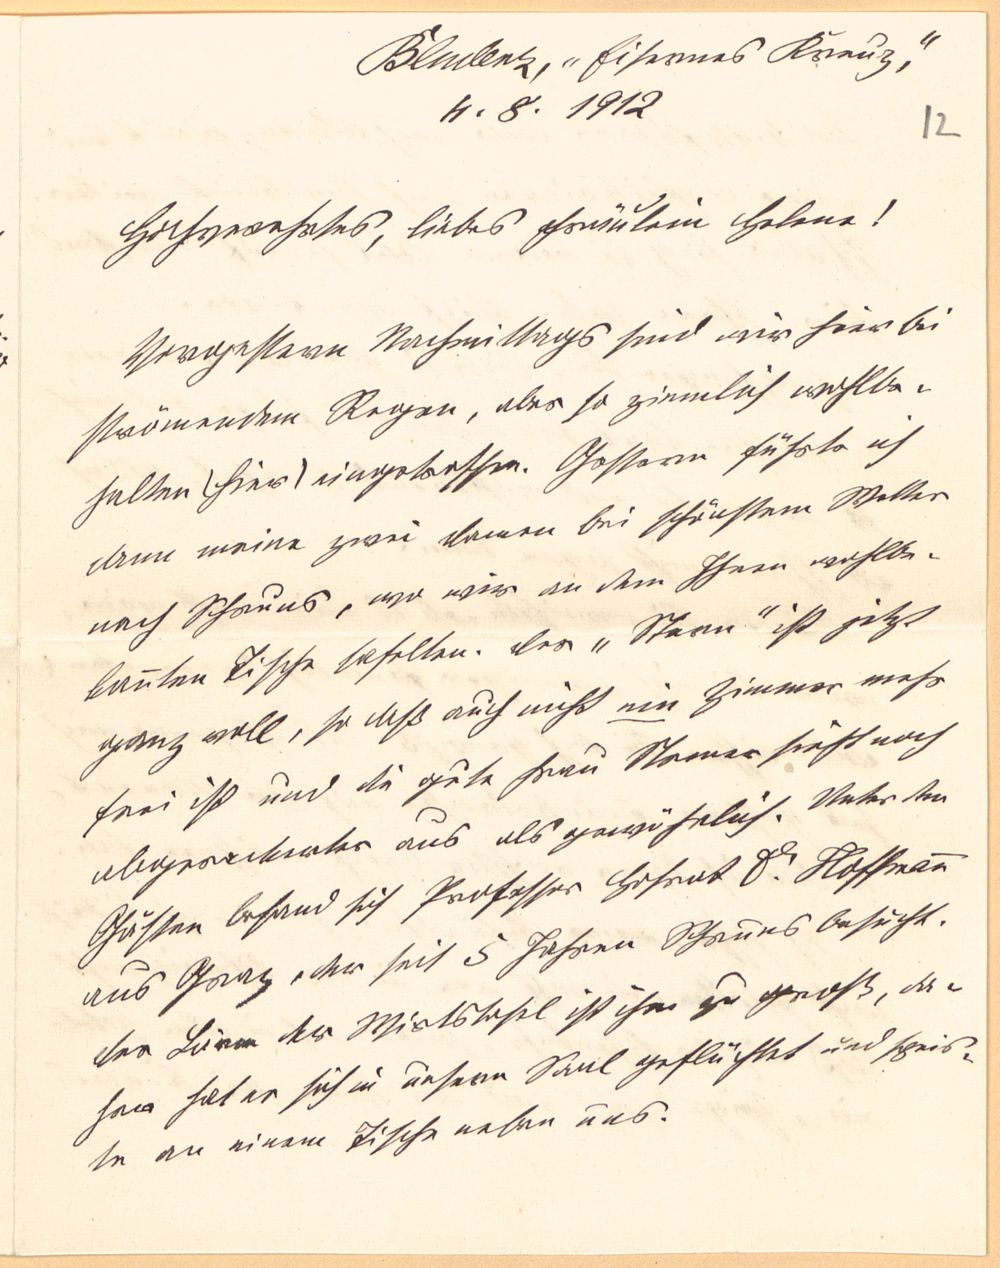 Bludenz, „Eisernes Kreuz,“
4. 8. 1912
12
Hochverehrtes, liebes Fräulein Helene!
Vorgestern Nachmittags sind wir hier bei
strömendem Regen, aber so ziemlich wohlbe-
halten (hier) eingetroffen. Gestern führte ich
dann meine zwei Damen bei schönstem Wetter
nach Schruns, wo wir an dem Ihnen wohlbe-
kannten Tische tafelten. Der „Stern“ ist jetzt
ganz voll, so daß auch nicht ein Zimmer mehr
frei ist und die gute Frau sieht noch
abgerackerter aus als gewöhnlich. Unter den
Gästen befand sich Professor Hofrat Dr. Hoffmann
aus Graz, der seit 5 Jahren Schruns besucht.
Der Lärm der Wirtstafel ist ihm zu groß, da-
her hat er sich in unsern Saal geflüchtet und speis-
te an einem Tische neben uns.